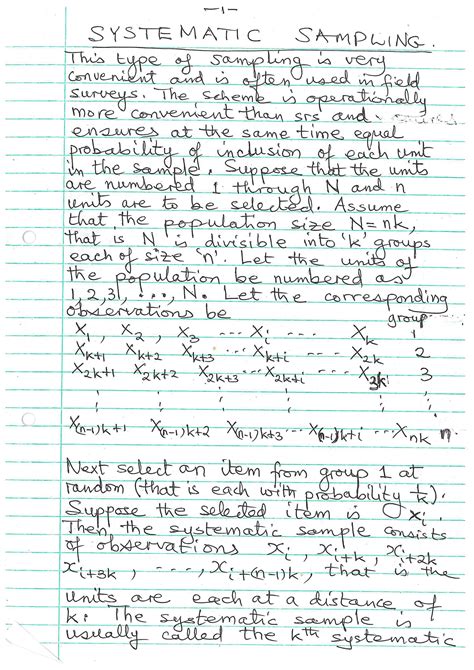 -1-
SYSTEMATIC SAMPLING.
This type of sampling is very
convenient and is often used in field
surveys. The scheme is operationally
more convenient than srs and
ensures at the same time equal
probability of inclusion of each unit
in the sample. Suppose that the units
are numbered 1 through N and n
units are to be selected. Assume
that the population size N=nk,
that is N is divisible into 'k' groups
each of size 'n'. Let the units of
the population be numbered as
1,2,3, ..., N. Let the corresponding
observations be group
X₁, X₂, X₃ ... Xᵢ ... Xₖ 1
Xₖ₊₁ Xₖ₊₂ Xₖ₊₃ ... Xₖ₊ᵢ ... X₂ₖ 2
X₂ₖ₊₁ X₂ₖ₊₂ X₂ₖ₊₃ ... X₂ₖ₊ᵢ ... X₃ₖ 3
⋮ ⋮ ⋮ ⋮ ⋮ ⋮
X₍ₙ₋₁₎ₖ₊₁ X₍ₙ₋₁₎ₖ₊₂ X₍ₙ₋₁₎ₖ₊₃ ... X₍ₙ₋₁₎ₖ₊ᵢ ... Xₙₖ n
Next select an item from group 1 at
random (that is each with probability 1/k).
Suppose the selected item is xᵢ.
Then the systematic sample consists
of observations xᵢ, xᵢ₊ₖ, xᵢ₊₂ₖ
xᵢ₊₃ₖ, ----, xᵢ₊₍ₙ₋₁₎ₖ, that is the
units are each at a distance of
k. The systematic sample is
usually called the kth systematic